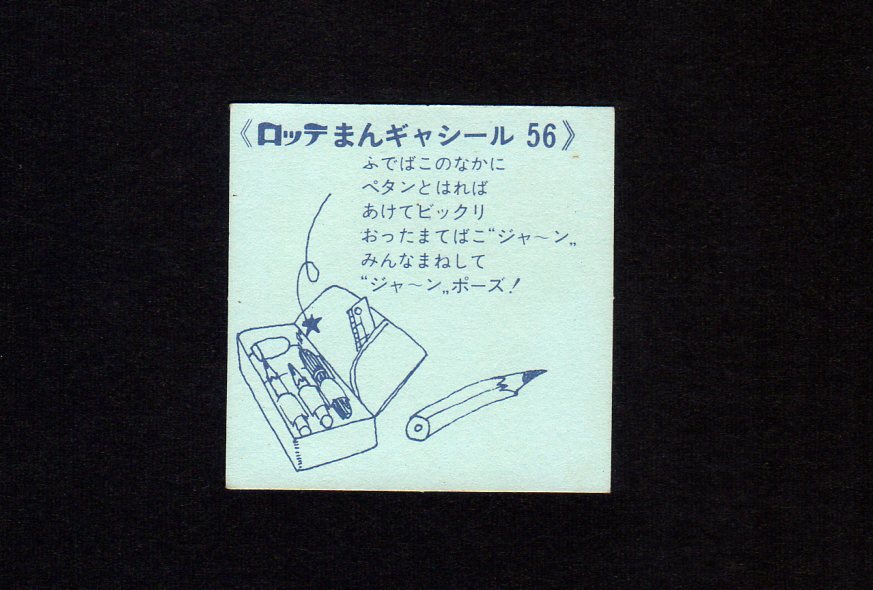 《ロッテまんギャシール 56》
ふでばこのなかに
ペタンとはれば
あけてビックリ
おったまてばこ“ジャ〜ン„
みんなまねして
“ジャ〜ン„ポーズ！